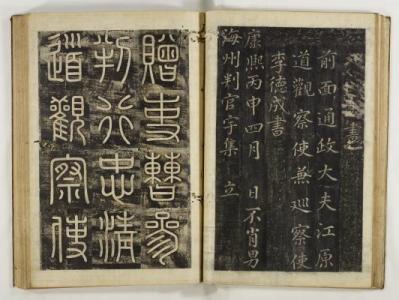 書
前面通政大夫江原
道觀察使兼巡察使
李德成書
康熙丙申四月 日不肖男
海州判官宇集 立
贈吏曹參
判行忠清
道觀察使